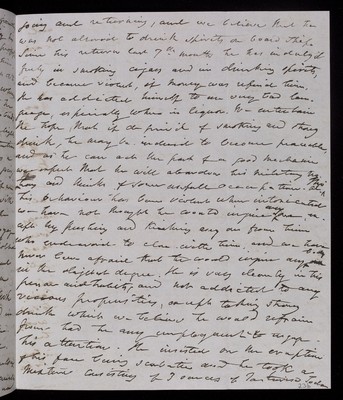 going and returning, and we believe that he
was not allowed to drink spirits on board ship.
Since his return last 7th month he has indulged
freely in smoking cigars and in drinking spirits,
and became violent, if money was refused him.
He has addicted himself to very bad lan-
guage, especially when in liquor. We entertain
the hope that if deprived of smoking and strong
drink, he may be induced to become peaceable,
and as he can act the part of a good mechanic
we that he will abandon his military
and think of some useful occupation.
his behaviour has been violent when intoxicated
we have not thought he would injure any one
by pushing and kicking any one from him
who endeavoured to close with him, and we have
never been afraid that he would injure any one
in the slightest degree. He is very cleanly in his
person and habits, and not addicted to any
vicious propensities, except taking strong
drink which we believe he would refrain
from had he any employment to engage
his attention. He insisted on the eruption
of his face being and he took a
Mixture consisting of 7 ounces of